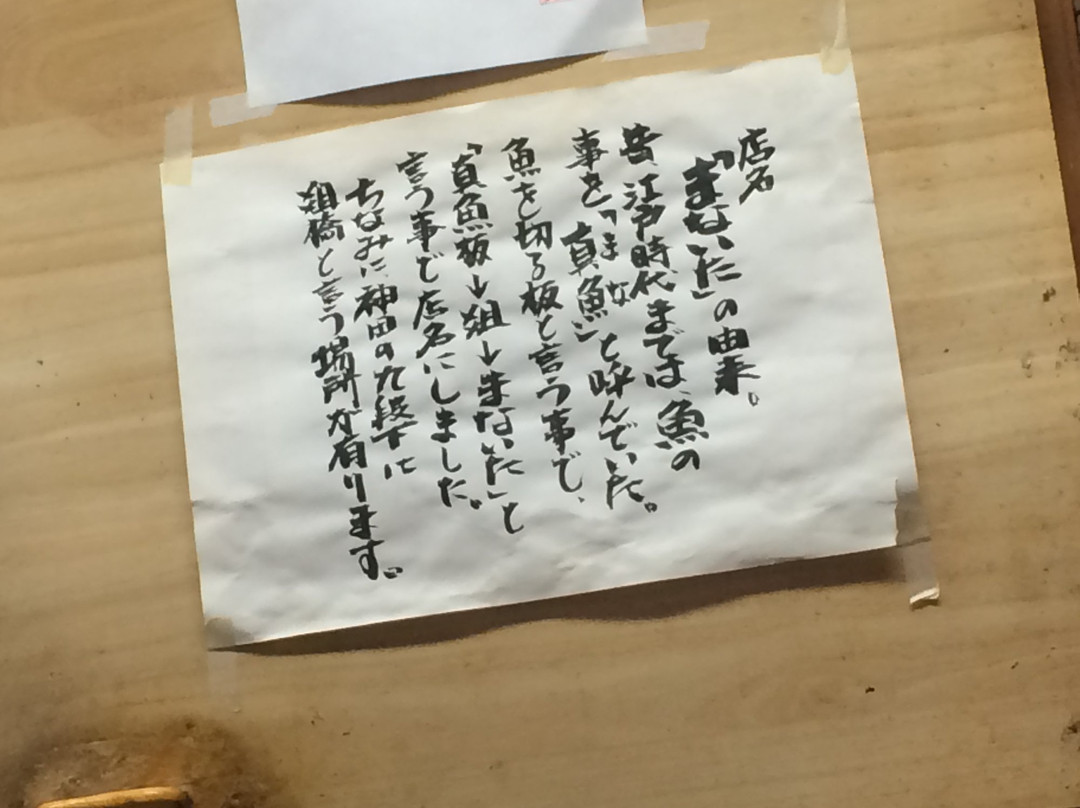 店名
「まないた」の由来。
昔、江戸時代までは、魚の
事を「まな 真魚」と呼んでいた。
魚を切る板と言う事で、
「真魚板→俎→まないた」と
言う事で店名にしました。
ちなみに、神田の九段下に
俎橋と言う場所が有ります。